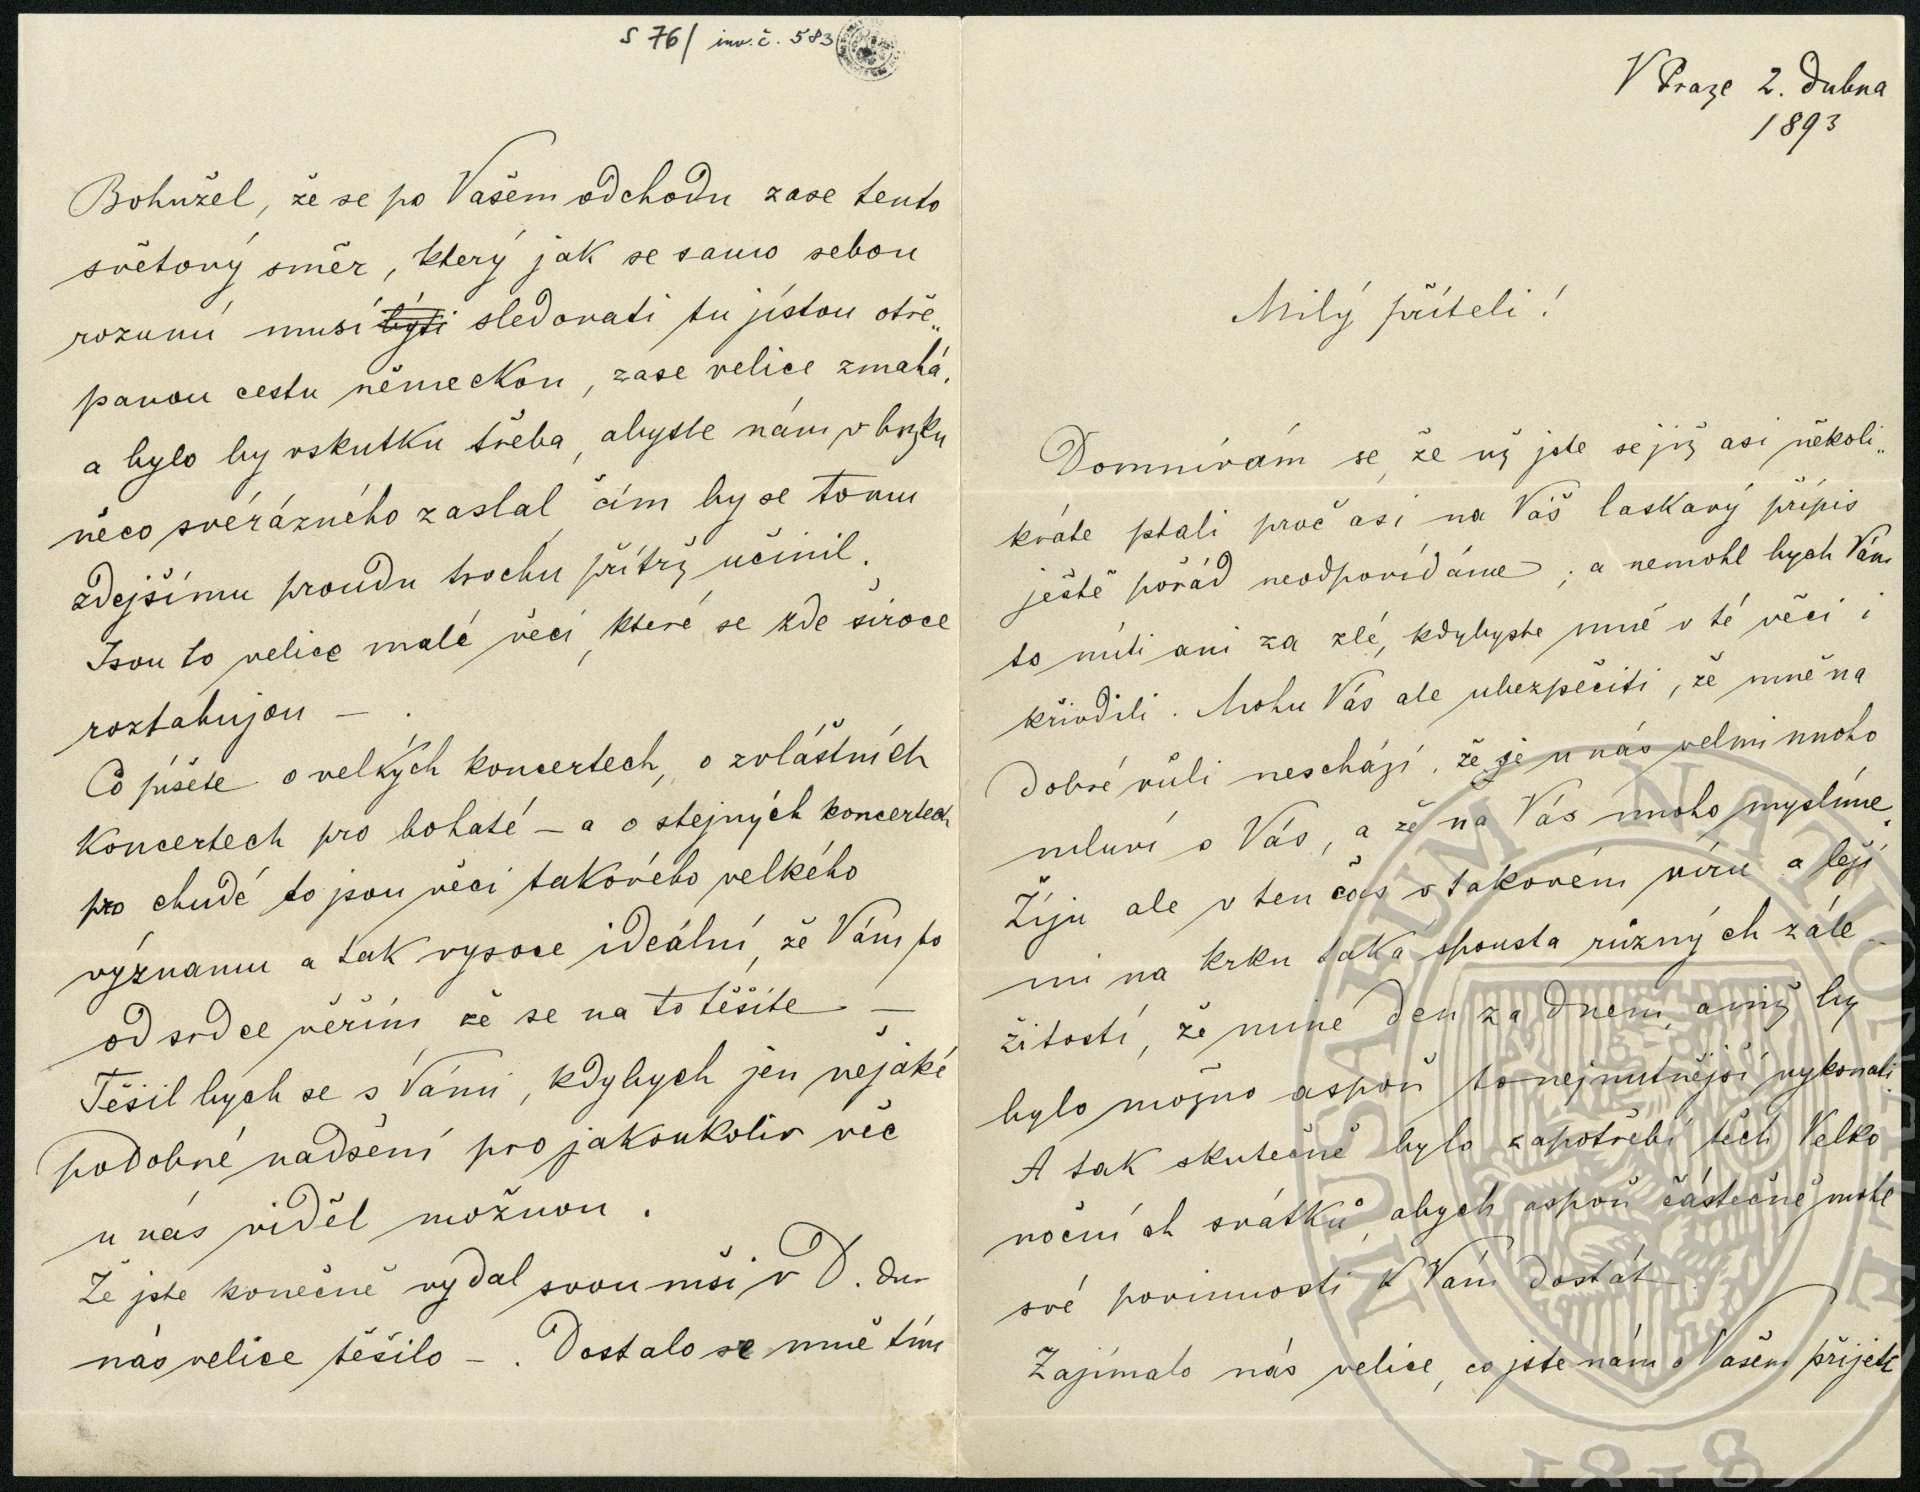 S 76/ inv. č. 583
Bohužel, že se po Vašem odchodu zase tento
světový směr, který jak se samo sebou
rozumí musí býti sledovati tu jistou otře„
panou cestu německou, zase velice zmahá,
a bylo by vskutku třeba, abyste nám v brzku
něco svérázného zaslal čím by se tomu
zdejšímu proudu trochu přítrž učinil.
Jsou to velice malé věci, které se zde široce
roztahujou — .
Co píšete o velkých koncertech, o zvláštních
koncertech pro bohaté — a o stejných koncertech
pro chudé to jsou věci takového velkého
významu a tak vysoce ideální, že Vám to
od srdce věřím že se na to těšíte —
Těšil bych se s Vámi, kdybych jen nějaké
podobné nadšení pro jakoukoliv věc
u nás viděl možnou.
Že jste konečně vydal svou mši v D. dur
nás velice těšilo — . Dostalo se mně tím
V Praze 2. dubna
1893
Milý příteli!
Domnívám se, že vy jste se již asi několi„
kráte ptali proč asi na Váš laskavý přípis
ještě pořád neodpovídáme; a nemohl bych Vám
to míti ani za zlé, kdybyste mně v té věci i
křivdili. Mohu Vás ale ubezpečiti, že mně na
dobré vůli neschází, že je u nás velmi mnoho
mluví o Vás, a že na Vás mnoho myslíme.
Žiju ale v ten čas v takovém víru a leží
mi na krku taká spousta různých zále
žitostí, že mine den za dnem, aniž by
bylo možno aspoň to nejnutnější vykonati.
A tak skutečně bylo zapotřebí těch Velko
nočních svátků, abych aspoň částečně mohl
své povinnosti k Vám dostát.
Zajímalo nás velice, co jste nám o Vašem přijetí
MUSAEUM NATIONALE
1818